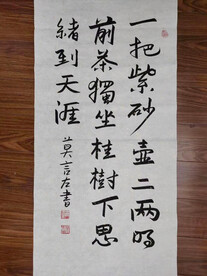 一把紫砂壶二两明
前茶獨坐桂樹下思
緒到天涯
莫言左書